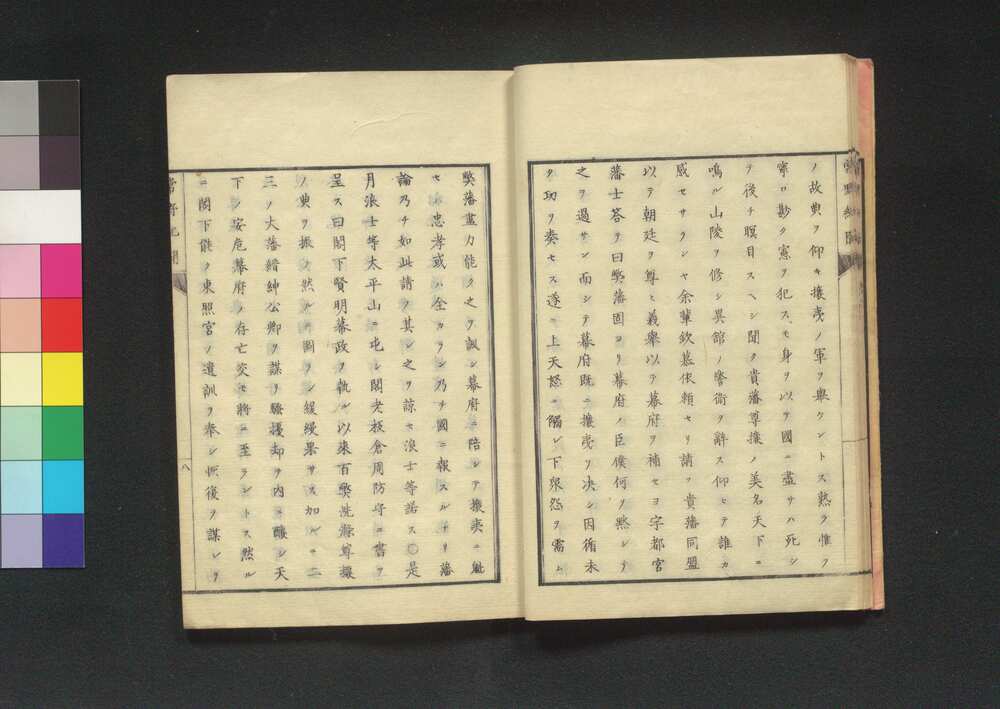 ノ故典ヲ仰キ攘夷ノ軍ヲ擧ケントス熟ラ惟フ
寧ロ勘ク憲ヲ犯スモ身ヲ以テ國ニ盡サハ死シ
テ後チ瞑目スヘシ聞ク貴藩尊攘ノ美名天下ニ
鳴ル山陵ヲ修シ異館ノ警衛ヲ辭ス仰セテ誰カ
感セサランヤ余輩欽慕依頼セリ請フ貴藩同盟
以テ朝廷ヲ尊ヒ義擧以テ幕府ヲ補セヨ宇都宮
藩士答ヲ曰弊藩固ヨリ幕府ノ臣僕何ソ黙シテ
之ヲ過サン而シテ幕府既ニ攘夷ヲ决シ因循未
タ功ヲ奏セス遂ニ上天怒ニ觸レ下衆怨ヲ需ム
弊藩盡力能ク之ヲ諷シ幕府ニ陪シテ攘夷ニ魁
セハ忠孝或ハ全カラン乃チ國ニ報スルナリ藩
論乃チ如此請フ其レ之ヲ諒セ浪士等諾ス〇是
月浪士等太平山ニ屯シ閣老板倉周防守ニ書ヲ
呈ス曰閣下賢明幕政ヲ執ル以来百弊洗滌尊攘
ノ典ヲ振ノ然ルニ圖ラン緩緩果サス加ルニ二
三ノ大藩縉紳公卿ヲ謀リ騒擾却ヲ内ニ醸シ天
下ノ安危幕府ノ存亡旦セ將ニ至ラントス然ル
ニ閣下能ク東照宮ノ遺訓ヲ奉シ恢復ヲ謀レク
八